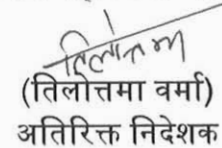 तिलोत्तमा
(तिलोत्तमा वर्मा)
अतिरिक्त निदेशक